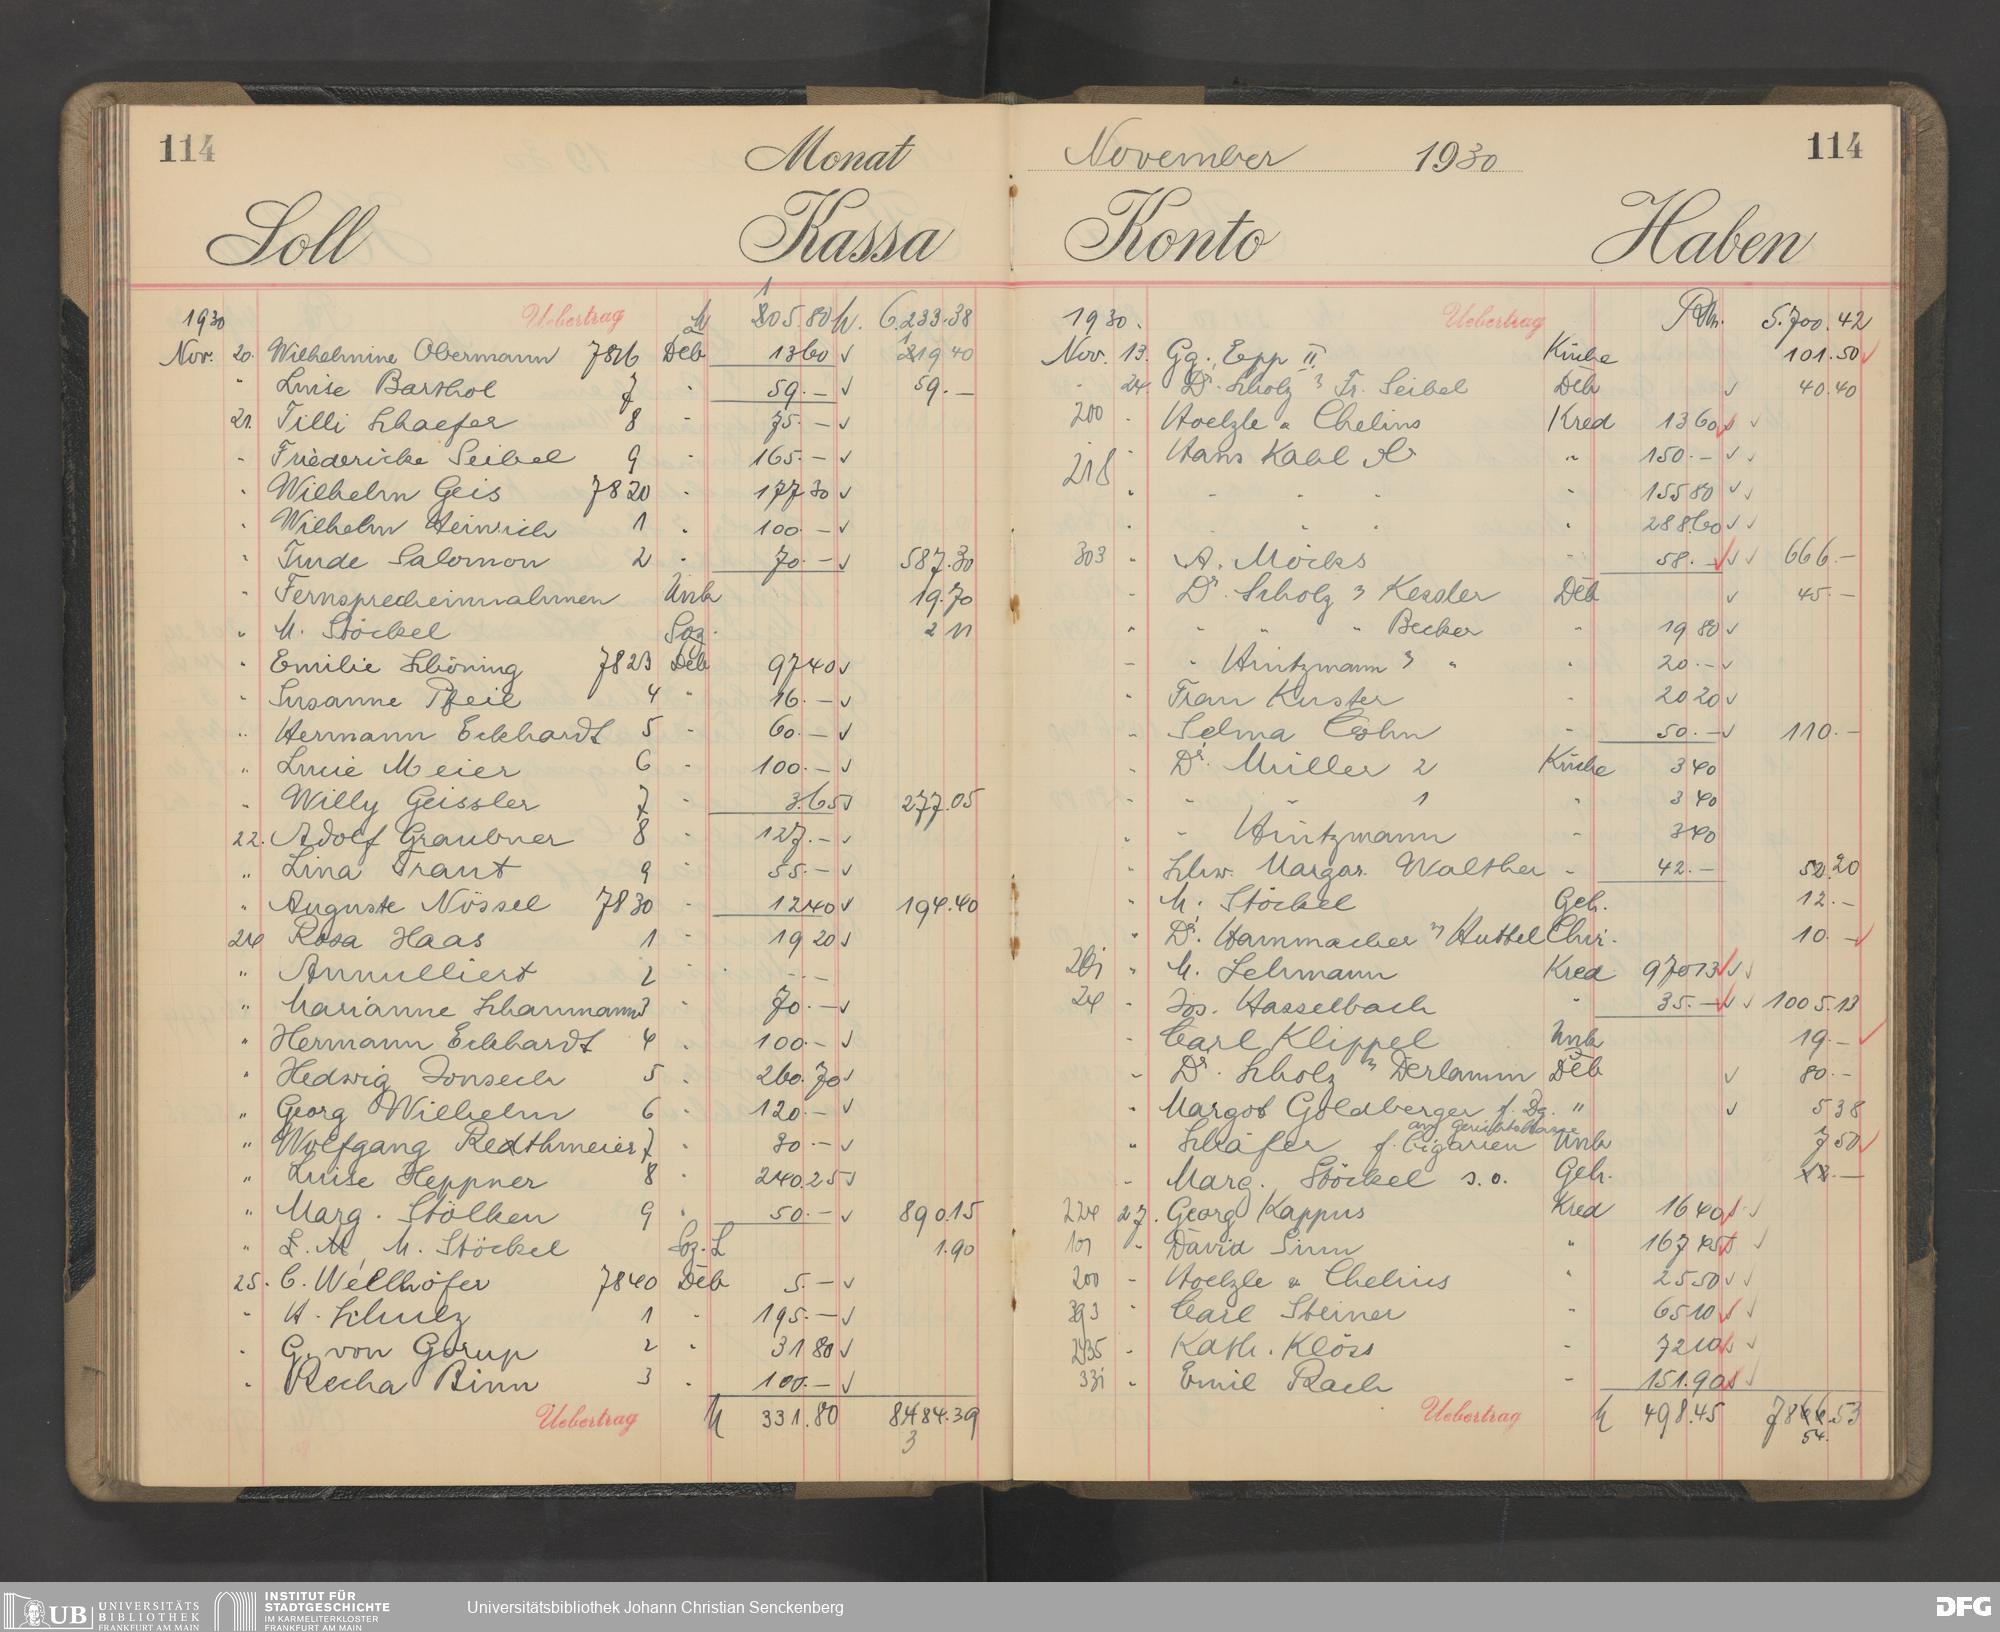 114
Monat
Soll
Kassa
1930
Uebertrag
M
205.80
1
M. 6.233.38
Nov. 20. Wilhelmine Obermann 7816 Deb 13 60 219 40
1
" Luise Barthol 7 " 59.— 59.—
21. Tilli Schaefer 8 " 75.—
" Friedericke Seibel 9 " 165.—
" Wilhelm Geis 7820 " 177 30
" Wilhelm Heinrich 1 " 100.—
" Trude Salomon 2 " 70.— 587.30
" Fernsprecheinnahmen Unk 19.70
" M. Stöckel Soz. 2 11
" Emilie Schöning 7823 Deb 97 40
" Susanne Pfeil 4 " 16.—
" Hermann Eckhardt 5 " 60.—
" Lucie Meier 6 " 100.—
" Willy Geissler 7 " 3.65 277.05
22. Adolf Graubner 8 " 127.—
" Lina Traut 9 " 55.—
" Auguste Nössel 7830 " 12 40 194.40
24 Rosa Haas 1 " 19 20
" Annulliert 2 " - - -
" Marianne Schanmann 3 " 70.—
" Hermann Eckhardt 4 " 100.—
" Hedwig Jonsech 5 " 260.70
" Georg Wilhelm 6 " 120.—
" Wolfgang Redthmeier 7 " 30.—
" Luise Heppner 8 " 240.25
" Marg. Stölken 9 " 50.— 890.15
" M. Stöckel Soz. L 1.90
25. C. Wellhöfer 7840 Deb 5.—
" H. Schulz 1 " 195.—
" G. von Gorup 2 " 31 80
" Recha Binn 3 " 100.—
Uebertrag M 331.80 8484.39
3
November 1930
114
Konto
Haben
1930.
Uebertrag
RM. 5.700.42
Nov. 13. Gg. Epp II Küche 101.50
" 24. Dr. Scholz Fr. Seibel Deb 40.40
200 " Hoelzle & Chelius Kred 13 60
218 " Hans Kahl " 150.—
" " " " " 155 80
" " " " 288.60
303 " A. Möcks " 58.— 666.—
" Dr. Scholz Kessler Deb 45.—
" " " " Becker " 19 80
" " Hintzmann " " 20.—
" Frau Kuster " 20 20
" Selma Cohn " 50.— 110.—
" Dr. Müller 2 Küche 3 40
" " " 1 " 3 40
" " Hintzmann " 3 40
" Schw. Margar. Walther " 42.— 52.20
" M. Stöckel Geh. 12.—
" Dr. Hammacher Huttel Chir. 10.—
" M. Lehmann Kred 970 13
24 " Jos. Hasselbach " 35.— 1005.13
" Carl Klippel Unk 19.—
" Dr. Scholz Derlamm Deb 80.—
" Margot Goldberger f. Dg. " 5 38
an Gerichtskasse
" Schäfer f. Cigarren Unk 7 50
" Marg. Stöckel s. o. Geh. 12.—
224 27. Georg Kappus Kred 16 40
101 " David Sinn " 167 45
200 " Hoelzle & Chelius " 25 50
393 " Carl Steiner " 65 10
2435 " Kath. Klöss " 72 10
331 " Emil Rach " 151.90
Uebertrag M 498.45 7866.53
54.
UB
UNIVERSITÄTS
BIBLIOTHEK
FRANKFURT AM MAIN
INSTITUT FÜR
STADTGESCHICHTE
IM KARMELITERKLOSTER
FRANKFURT AM MAIN
Universitätsbibliothek Johann Christian Senckenberg
DFG